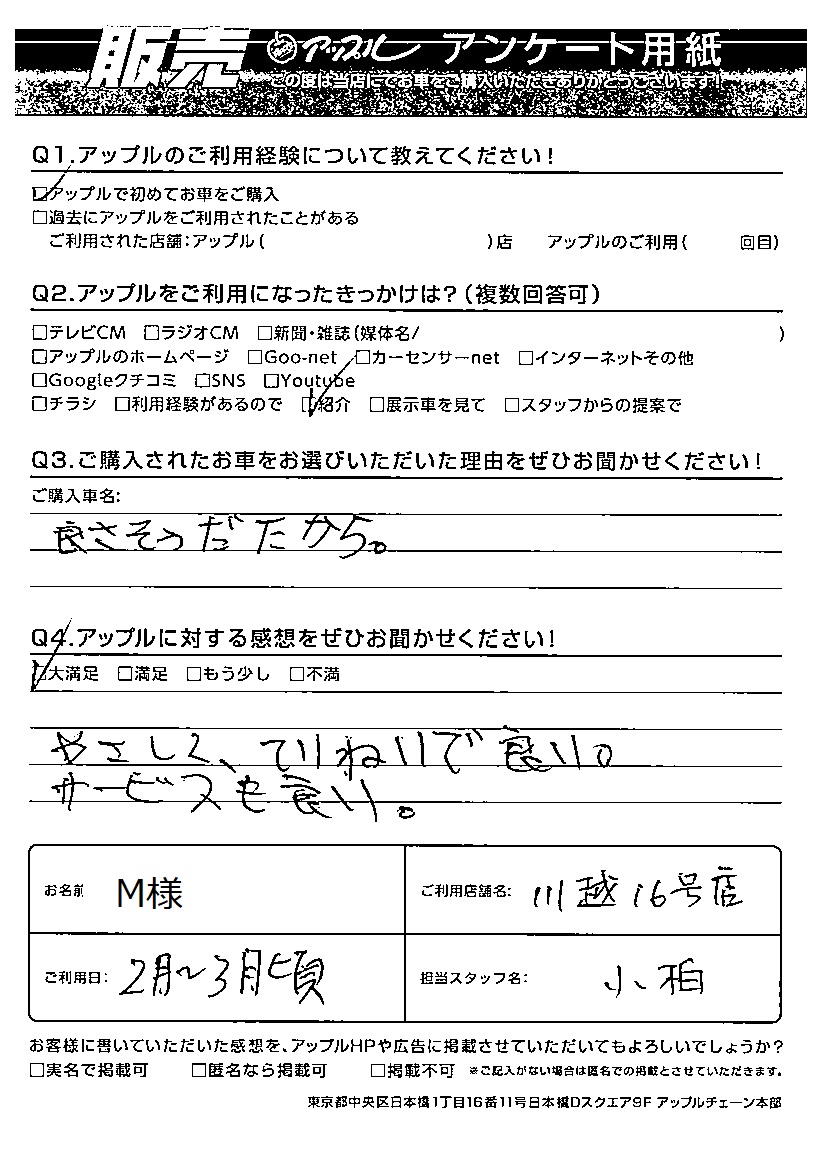 販売 アップル アンケート用紙
この度は当店にてお車をご購入いただきありがとうございます!
Q1.アップルのご利用経験について教えてください!
☑アップルで初めてお車をご購入
□過去にアップルをご利用されたことがある
ご利用された店舗:アップル( )店 アップルのご利用( 回目)
Q2.アップルをご利用になったきっかけは?(複数回答可)
□テレビCM □ラジオCM □新聞・雑誌(媒体名/ )
□アップルのホームページ □Goo-net □カーセンサーnet □インターネットその他
□Googleクチコミ □SNS □Youtube
□チラシ □利用経験があるので ☑紹介 □展示車を見て □スタッフからの提案で
Q3.ご購入されたお車をお選びいただいた理由をぜひお聞かせください!
ご購入車名:
良さそうだたから。
Q4.アップルに対する感想をぜひお聞かせください!
☑大満足 □満足 □もう少し □不満
やさしく、ていねいで良い。
サービスも良い。
お名前 M様 ご利用店舗名: 川越16号店
ご利用日: 2月~3月頃 担当スタッフ名: 小柏
お客様に書いていただいた感想を、アップルHPや広告に掲載させていただいてもよろしいでしょうか?
□実名で掲載可 □匿名なら掲載可 □掲載不可 ※ご記入がない場合は匿名での掲載とさせていただきます。
東京都中央区日本橋1丁目16番11号日本橋Dスクエア9F アップルチェーン本部